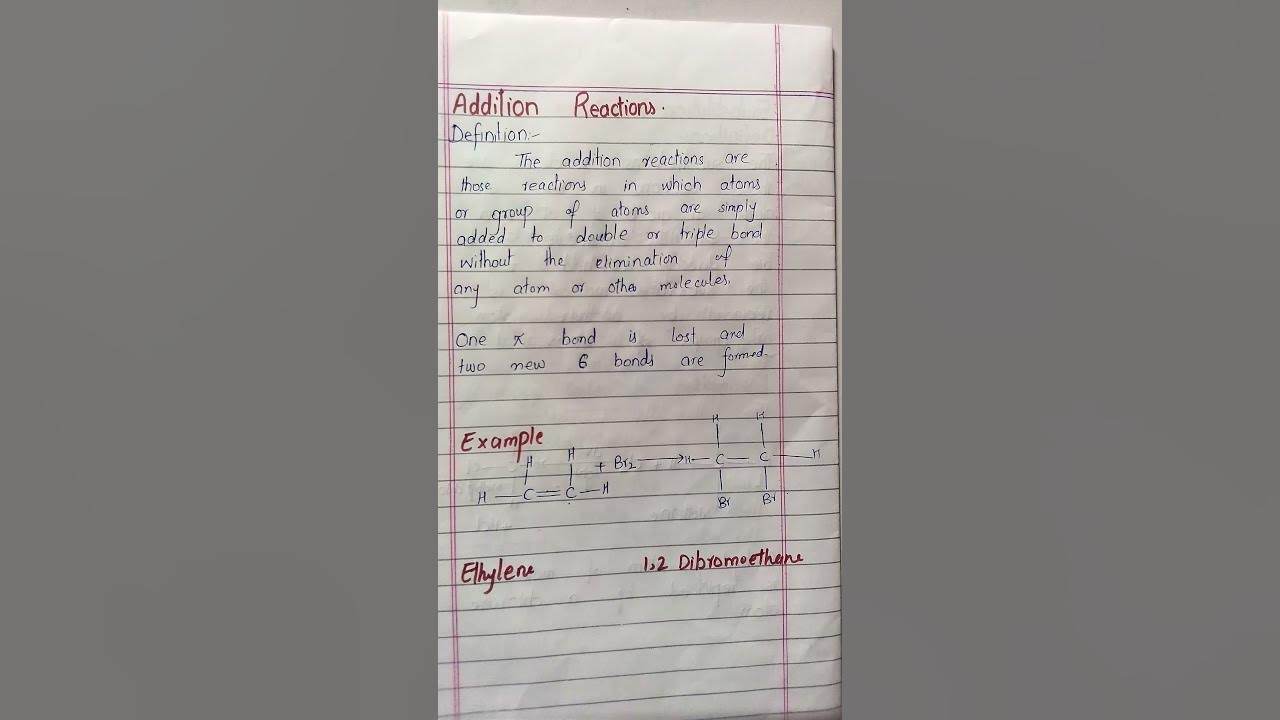 Addition Reactions.
Definition:-
The addition reactions are
those reactions in which atoms
or group of atoms are simply
added to double or triple bond
without the elimination of
any atom or other molecules.
One π bond is lost and
two new 6 bonds are formed.
Example
H H + Br₂ → H H
H — C = C — H H — C — C — H
Br Br
Ethylene 1,2 Dibromoethane